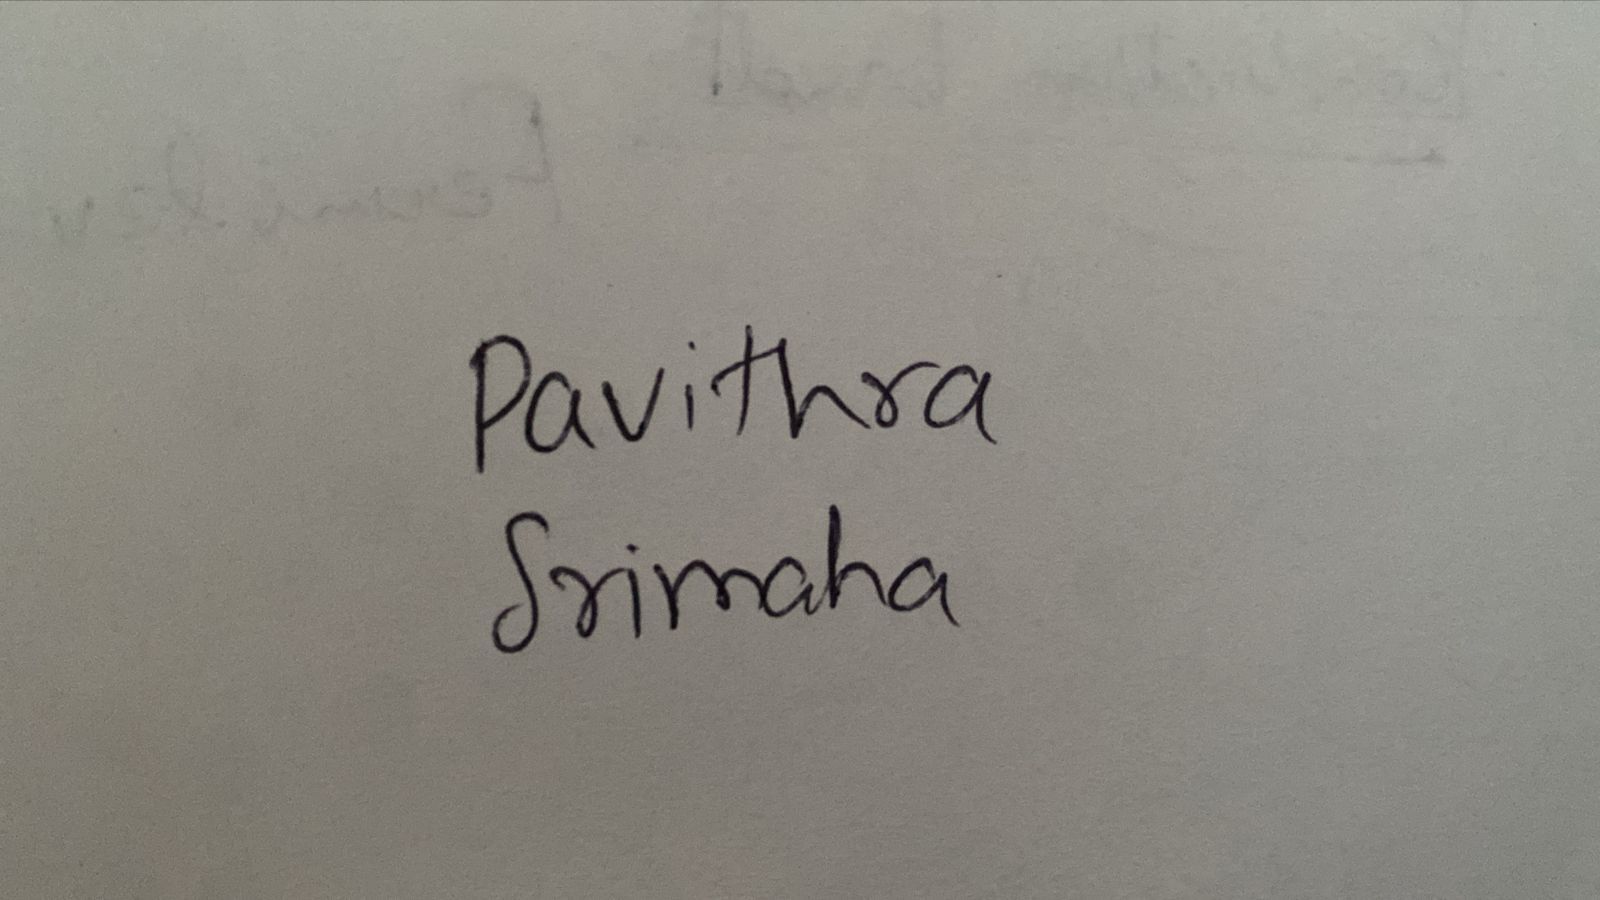 Pavithra
Srimaha